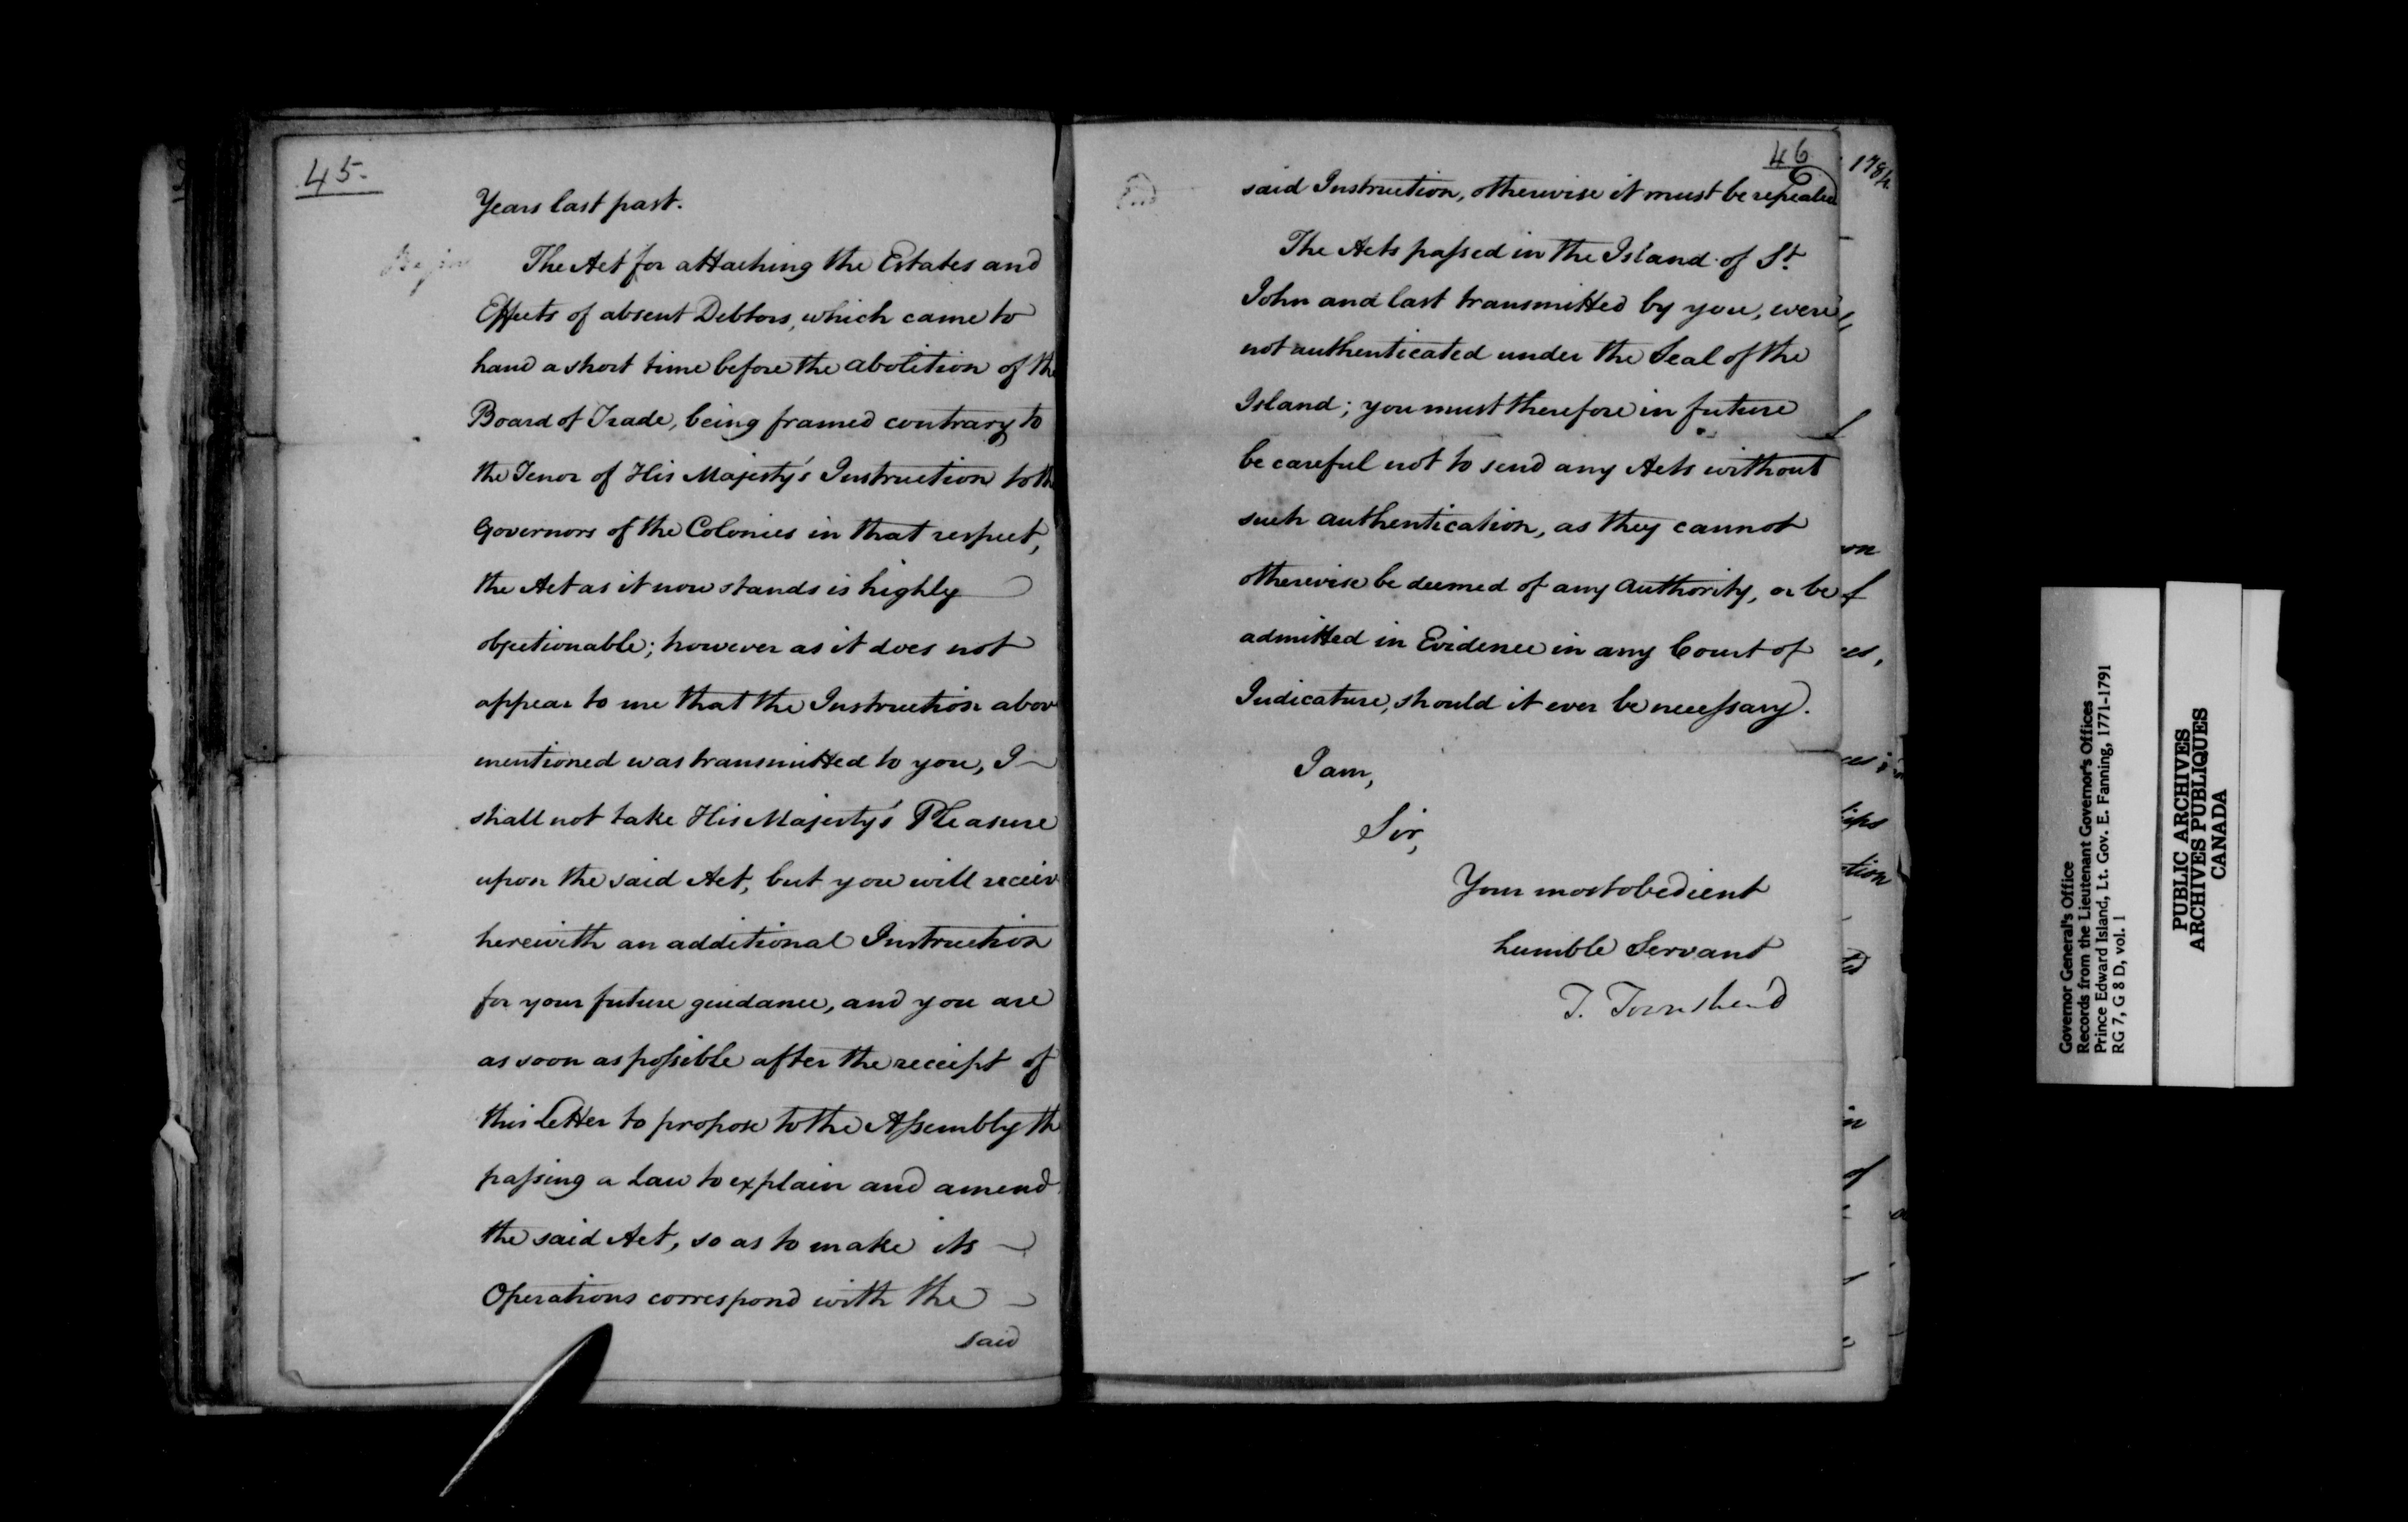 45.
Years last past.
Begin
The Act for attaching the Estates and
Effects of absent Debtors, which came to
hand a short time before the abolition of the
Board of Trade, being framed contrary to
the Tenor of His Majesty's Instruction to the
Governors of the Colonies in that respect,
the Act as it now stands is highly
objectionable; however as it does not
appear to me that the Instruction abov
mentioned was transmitted to you, I
shall not take His Majesty's Pleasure
upon the said Act, but you will receiv
herewith an additional Instruction
for your future guidance, and you are
as soon as possible after the receipt of
this Letter to propose to the Assembly th
passing a Law to explain and amend
the said Act, so as to make its
Operations correspond with the
said
46
End
said Instruction, otherwise it must be repealed
The Acts passed in the Island of St.
John and last transmitted by you, were
not authenticated under the Seal of the
Island; you must therefore in future
be careful not to send any Acts without
such authentication, as they cannot
otherwise be deemed of any authority, or be
admitted in Evidence in any Court of
Judicature, should it ever be necessary.
I am,
Sir,
Your most obedient
humble Servant
T. Townshend
1784
on
f
ces,
tion
in
of
Governor General's Office
Records from the Lieutenant Governor's Offices
Prince Edward Island, Lt. Gov. E. Fanning, 1771-1791
RG 7, G 8 D, vol. 1
PUBLIC ARCHIVES
ARCHIVES PUBLIQUES
CANADA